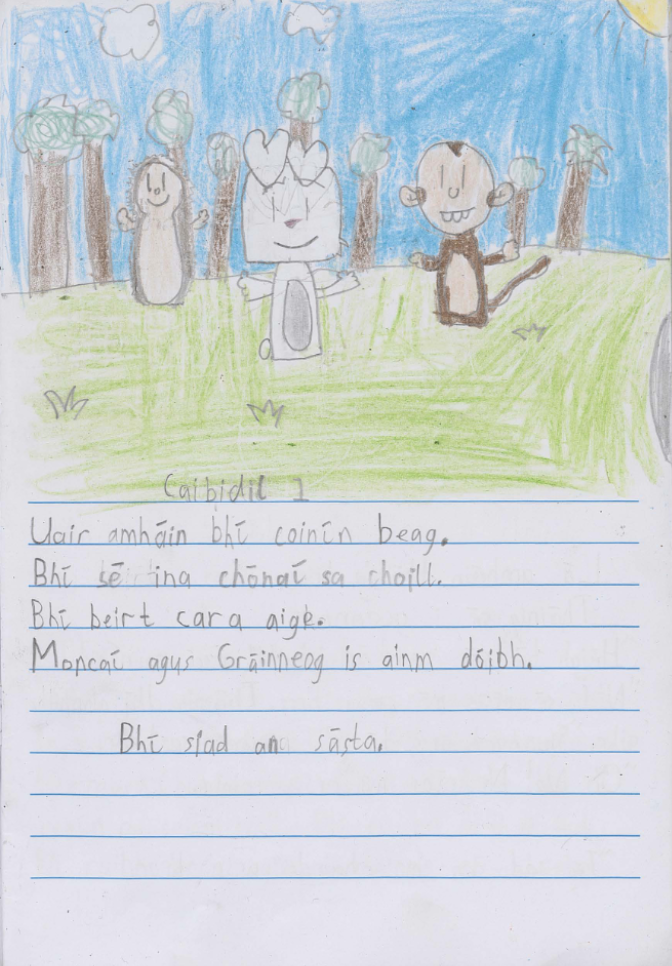 Caibidil 1
Uair amháin bhí coinín beag.
Bhí sé ina chónaí sa choill.
Bhí beirt cara aige.
Moncaí agus Gráinneog is ainm dóibh.
Bhí siad an sásta.